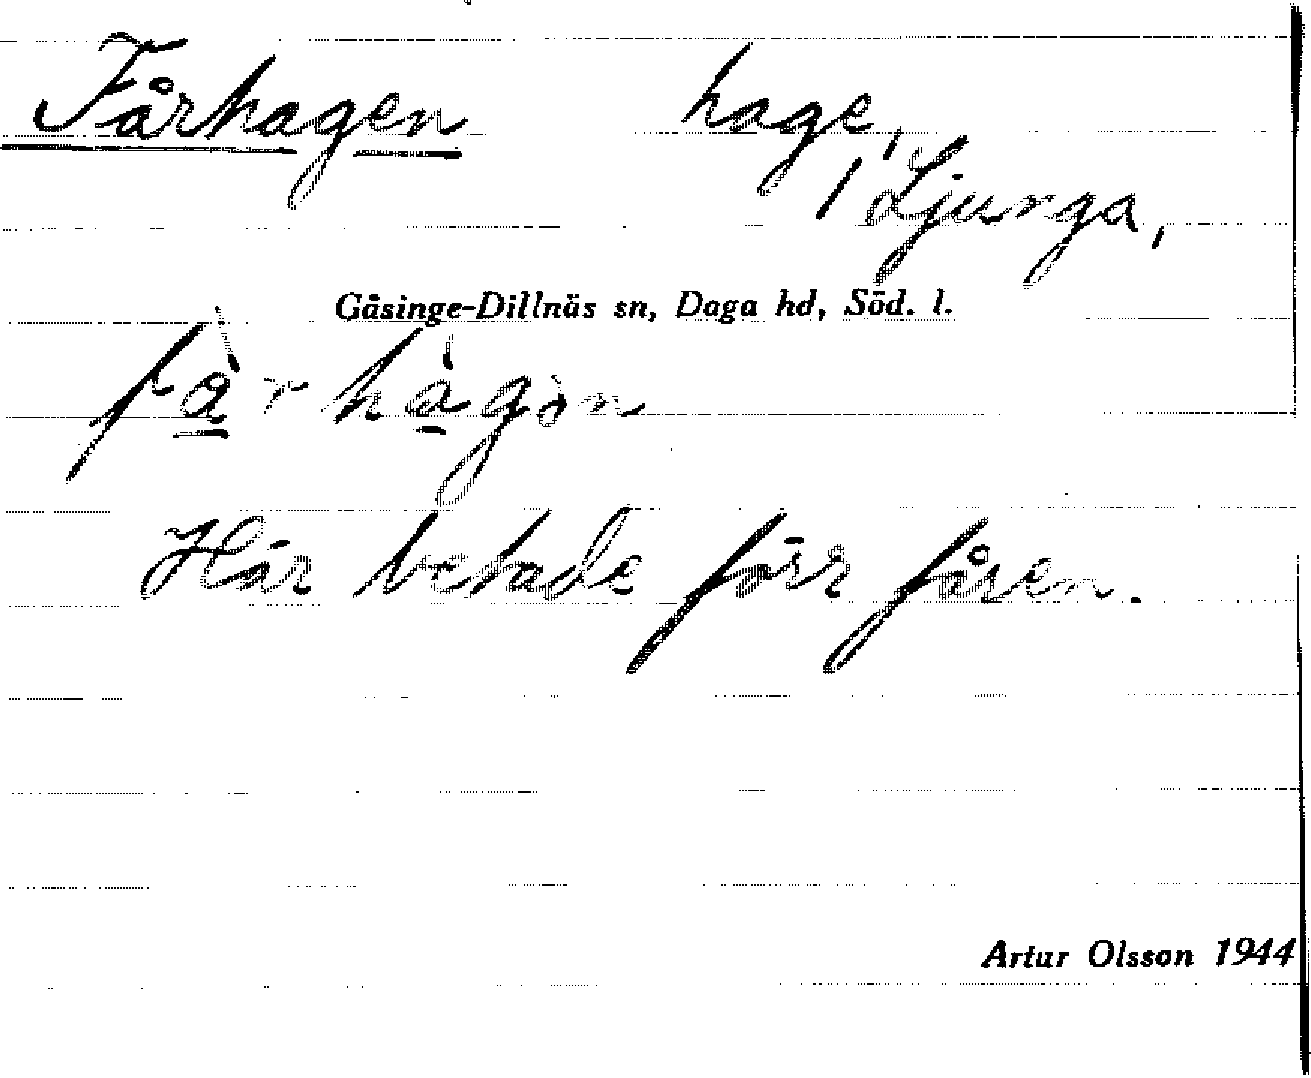 Fårhagen hage,
1 Ljunga,
Gåsinge-Dillnäs sn, Daga hd, Söd. l.
Här betade förr fåren.
Artur Olsson 1944